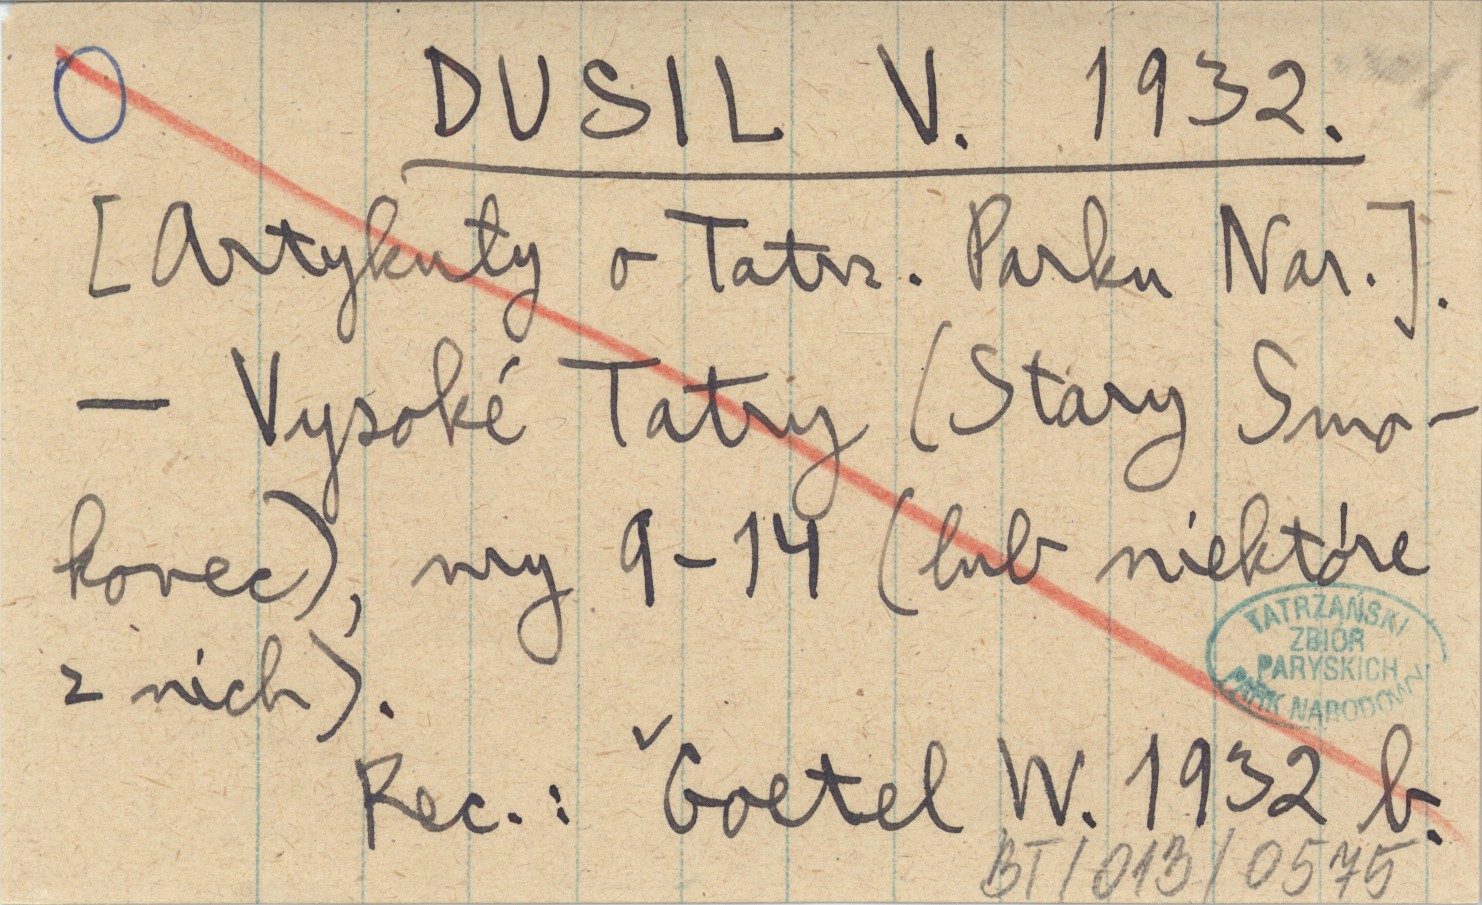 DUSIL V. 1932.
[Artykuły o Tatrz. Parku Nar.].
— Vysoké Tatry (Starý Smo-
kovec), nry 9-14 (lub niektóre
z nich).
TATRZAŃSKI
ZBIÓR
PARYSKICH
PARK NARODOWY
Rec.: ˇGoetel W. 1932 b.
BT/013/0575